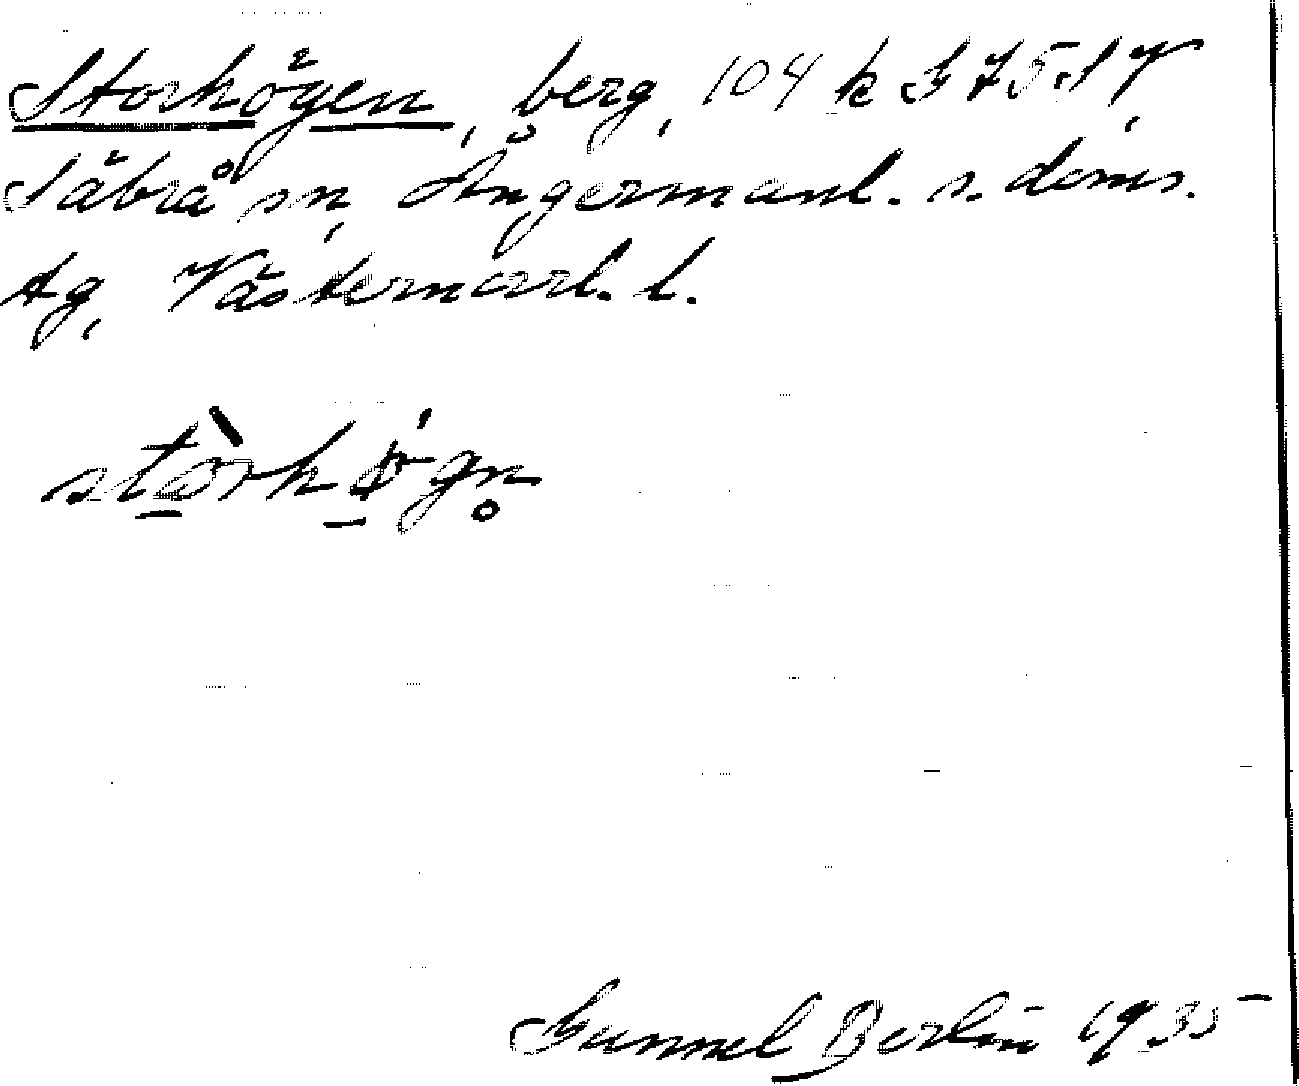 Storhögen, berg, 104 k G 75 SV,
Säbrå sn, Ångermanl. s. doms.
tg, Västernorrl. l.
stòrhö́gn̥
Gunnel Berlin 1935